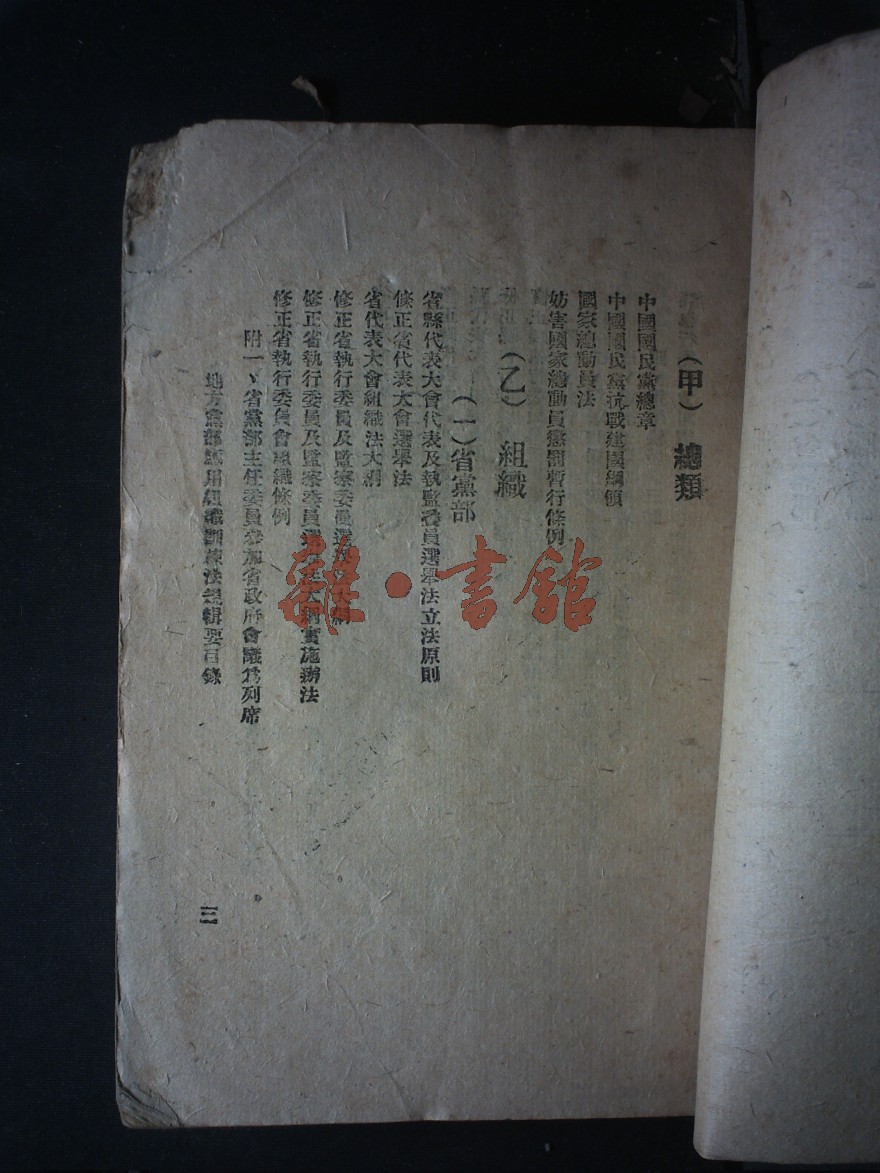 (甲) 總類
中國國民黨總章
中國國民黨抗戰建國綱領
國家總動員法
妨害國家總動員懲罰暫行條例
(乙) 組織
(一)省黨部
省縣代表大會代表及執監委員選舉法立法原則
修正省代表大會選舉法
省代表大會組織法大綱
修正省執行委員及監察委員選舉法大綱
修正省執行委員及監察委員選舉法大綱實施辦法
修正省執行委員會組織條例
附一、省黨部主任委員參加省政府會議爲列席
地方黨部應用組織訓練法規輯要目錄
三
雜·書館